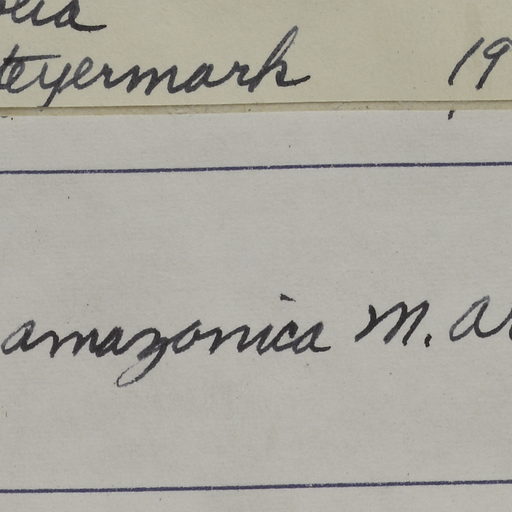 teyermark 19
amazonica M. Ar